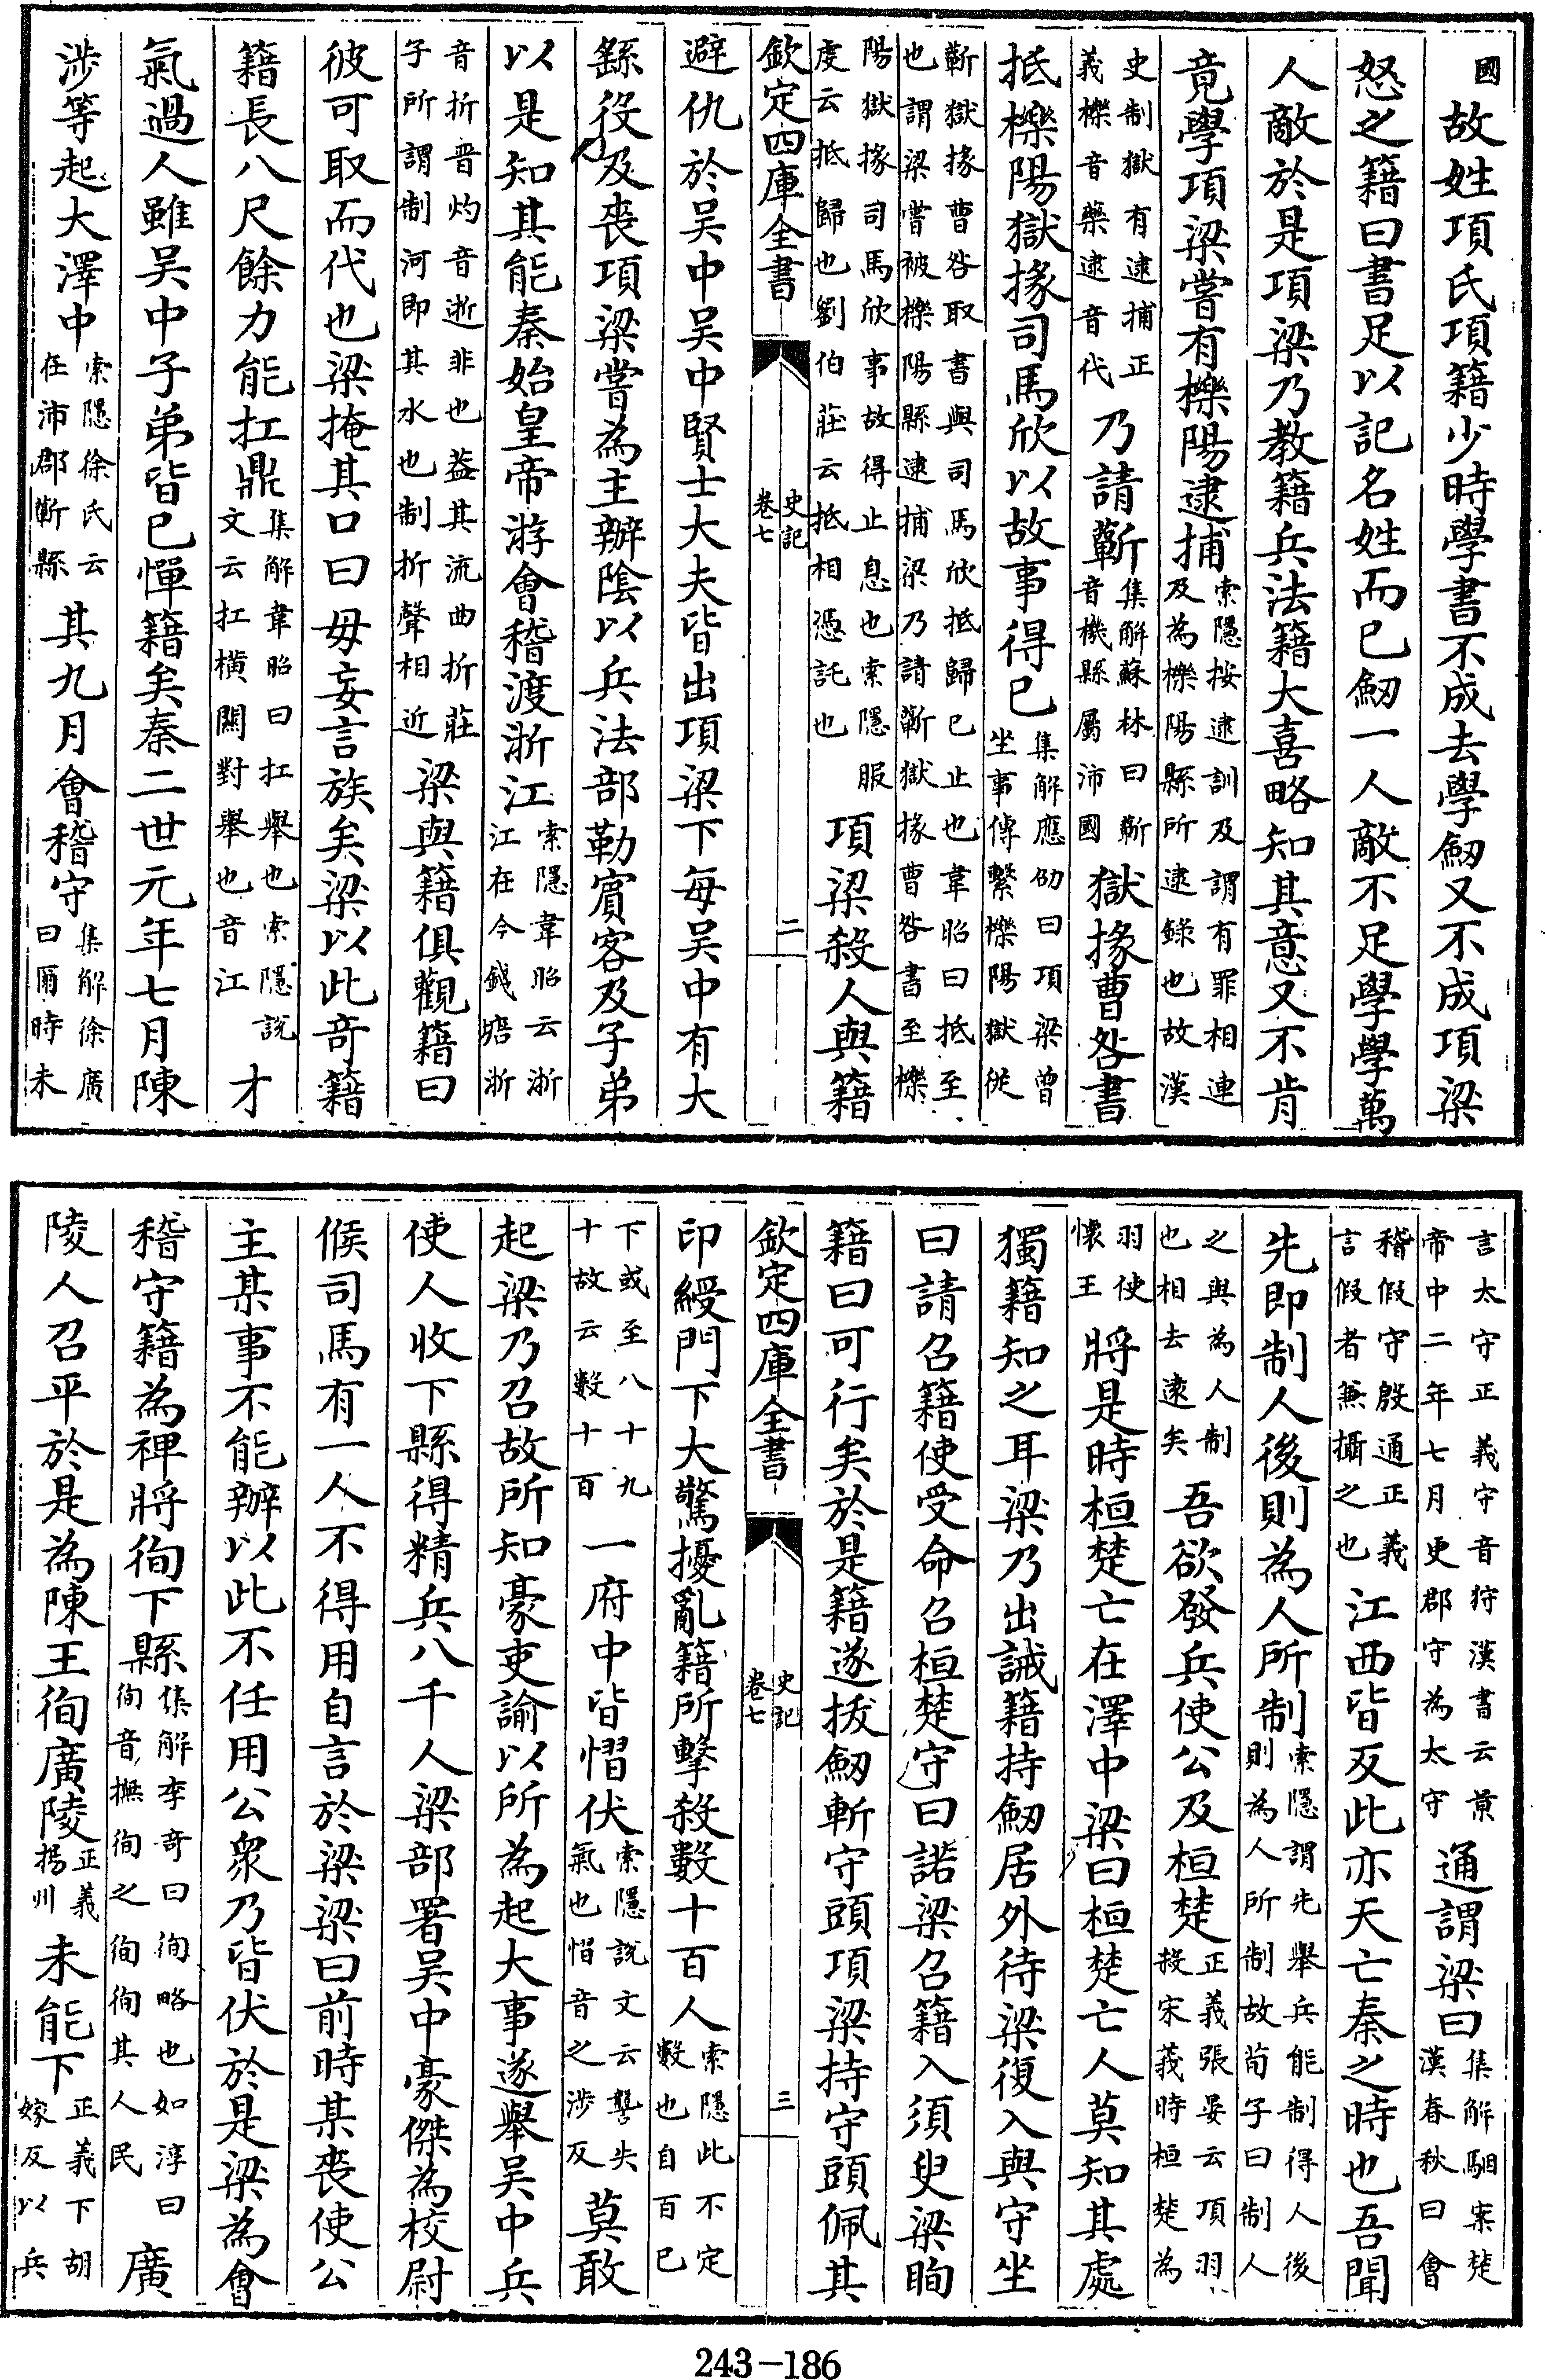 國故姓項氏項籍少時學書不成去學劒又不成項梁
怒之籍曰書足以記名姓而已劒一人敵不足學學萬
人敵於是項梁乃教籍兵法籍大喜略知其意又不肯
竟學項梁嘗有櫟陽逮捕索隱按逮訓及謂有罪相連及為櫟陽縣所逮錄也故漢
史制獄有逮捕正義櫟音藥逮音代乃請蘄集解蘇林曰蘄音機縣屬沛國獄掾曹咎書
抵櫟陽獄掾司馬欣以故事得已集解應劭曰項梁曾坐事傳繫櫟陽獄從
蘄獄掾曹咎取書與司馬欣抵歸已止也韋昭曰抵至也謂梁嘗被櫟陽縣逮捕梁乃請蘄獄掾曹咎書至櫟
陽獄掾司馬欣事故得止息也索隱服虔云抵歸也劉伯莊云抵相憑託也項梁殺人與籍
欽定四庫全書 史記卷七 二
避仇於吴中吴中賢士大夫皆出項梁下每吴中有大
繇役及喪項梁嘗為主辦陰以兵法部勒賓客及子弟
以是知其能秦始皇帝游會稽渡浙江索隱韋昭云浙江在今錢塘浙
音折晋灼音逝非也葢其流曲折莊子所謂制河即其水也制折聲相近梁與籍俱觀籍曰
彼可取而代也梁掩其口曰毋妄言族矣梁以此竒籍
籍長八尺餘力能扛鼎集解韋昭曰扛舉也索隱說文云扛横關對舉也音江才
氣過人雖吴中子弟皆已憚籍矣秦二世元年七月陳
涉等起大澤中索隱徐氏云在沛郡蘄縣其九月會稽守集解徐廣曰爾時未
言太守正義守音狩漢書云景帝中二年七月更郡守為太守通謂梁曰集解駰案楚漢春秋曰會
稽假守殷通正義言假者兼攝之也江西皆反此亦天亡秦之時也吾聞
先即制人後則為人所制索隱謂先舉兵能制得人後則為人所制故荀子曰制人
之與為人制也相去逺矣吾欲發兵使公及桓楚正義張晏云項羽殺宋義時桓楚為
羽使懷王將是時桓楚亡在澤中梁曰桓楚亡人莫知其處
獨籍知之耳梁乃出誡籍持劒居外待梁復入與守坐
曰請召籍使受命召桓楚守曰諾梁召籍入須臾梁眴
籍曰可行矣於是籍遂拔劒斬守頭項梁持守頭佩其
欽定四庫全書 史記卷七 三
印綬門下大驚擾亂籍所擊殺數十百人索隱此不定數也自百已
下或至八十九十故云數十百一府中皆慴伏索隱說文云讋失氣也慴音之涉反莫敢
起梁乃召故所知豪吏諭以所為起大事遂舉吴中兵
使人收下縣得精兵八千人梁部署吴中豪傑為校尉
候司馬有一人不得用自言於梁梁曰前時某喪使公
主某事不能辦以此不任用公衆乃皆伏於是梁為會
稽守籍為裨將徇下縣集解李竒曰徇略也如淳曰徇音撫徇之徇徇其人民廣
陵人召平於是為陳王徇廣陵正義揚州未能下正義下胡嫁反以兵
243-186